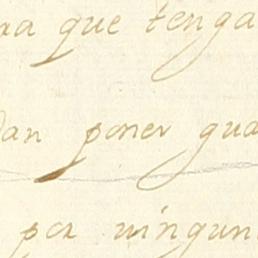 ra que tenga
dan poner gua
por ningun